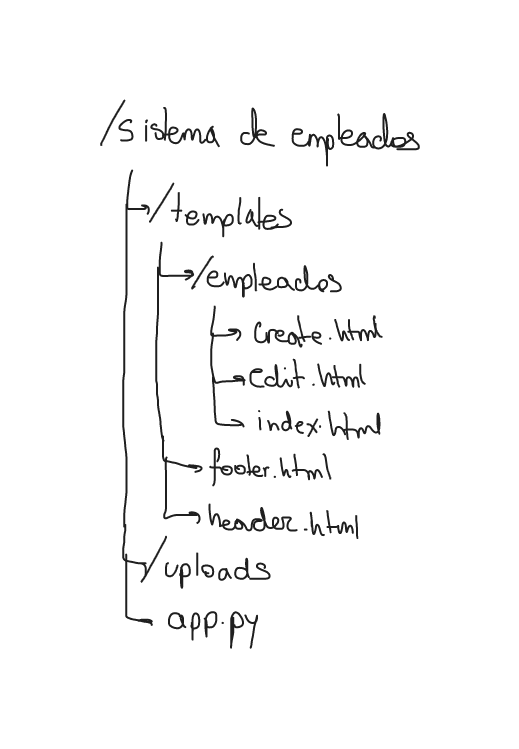 /sistema de empleados
/templates
/empleados
create.html
edit.html
index.html
footer.html
header.html
/uploads
app.py